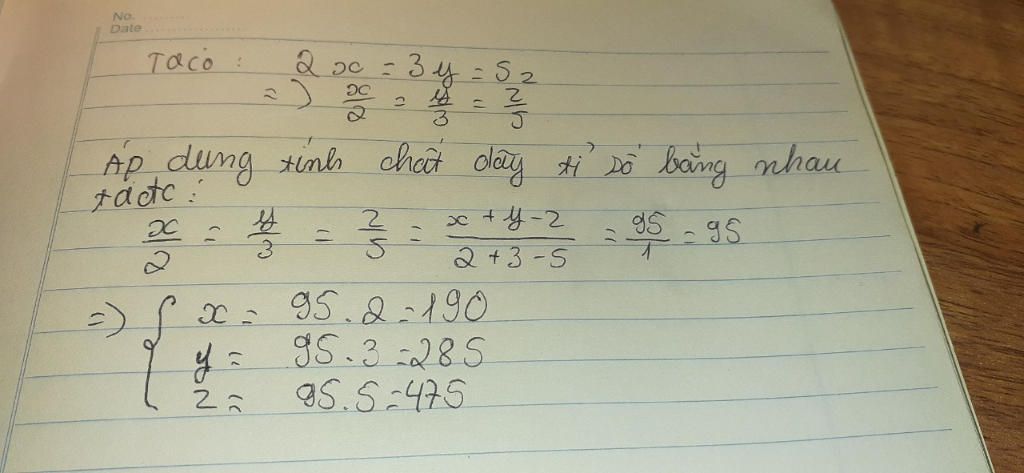 No.
Date
Ta có : 2x = 3y = 5z
=) x/2 = y/3 = z/5
Áp dung tính chất dãy tỉ số bằng nhau
tađtc :
x/2 = y/3 = z/5 = (x + y - z)/(2 + 3 - 5) = 95/1 = 95
=) { x = 95 . 2 = 190
y = 95 . 3 = 285
z = 95 . 5 = 475